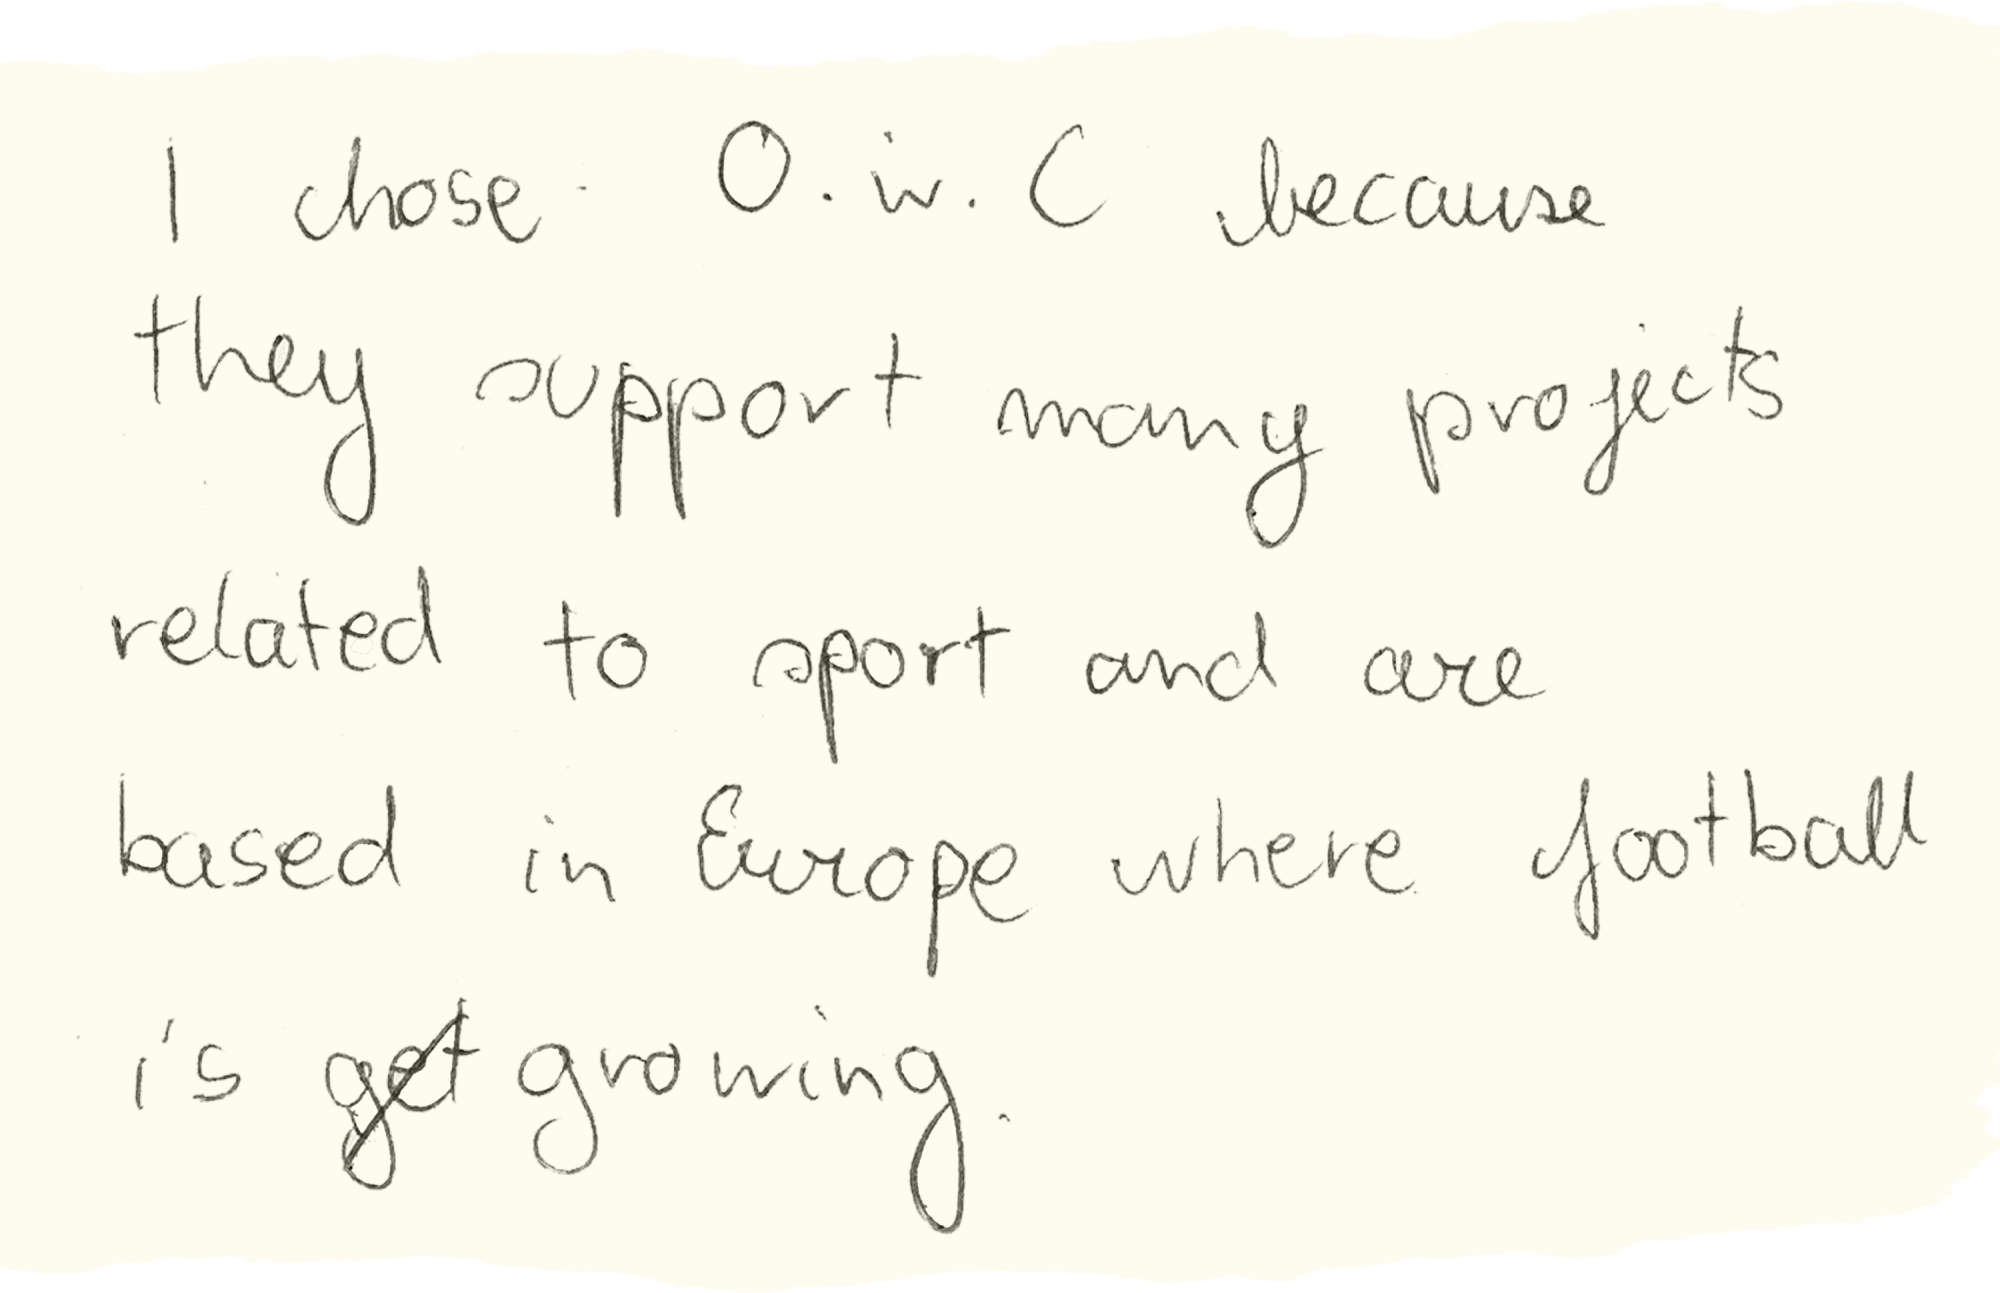 I chose O.w.C because
they support many projects
related to sport and are
based in Europe where football
is get growing.